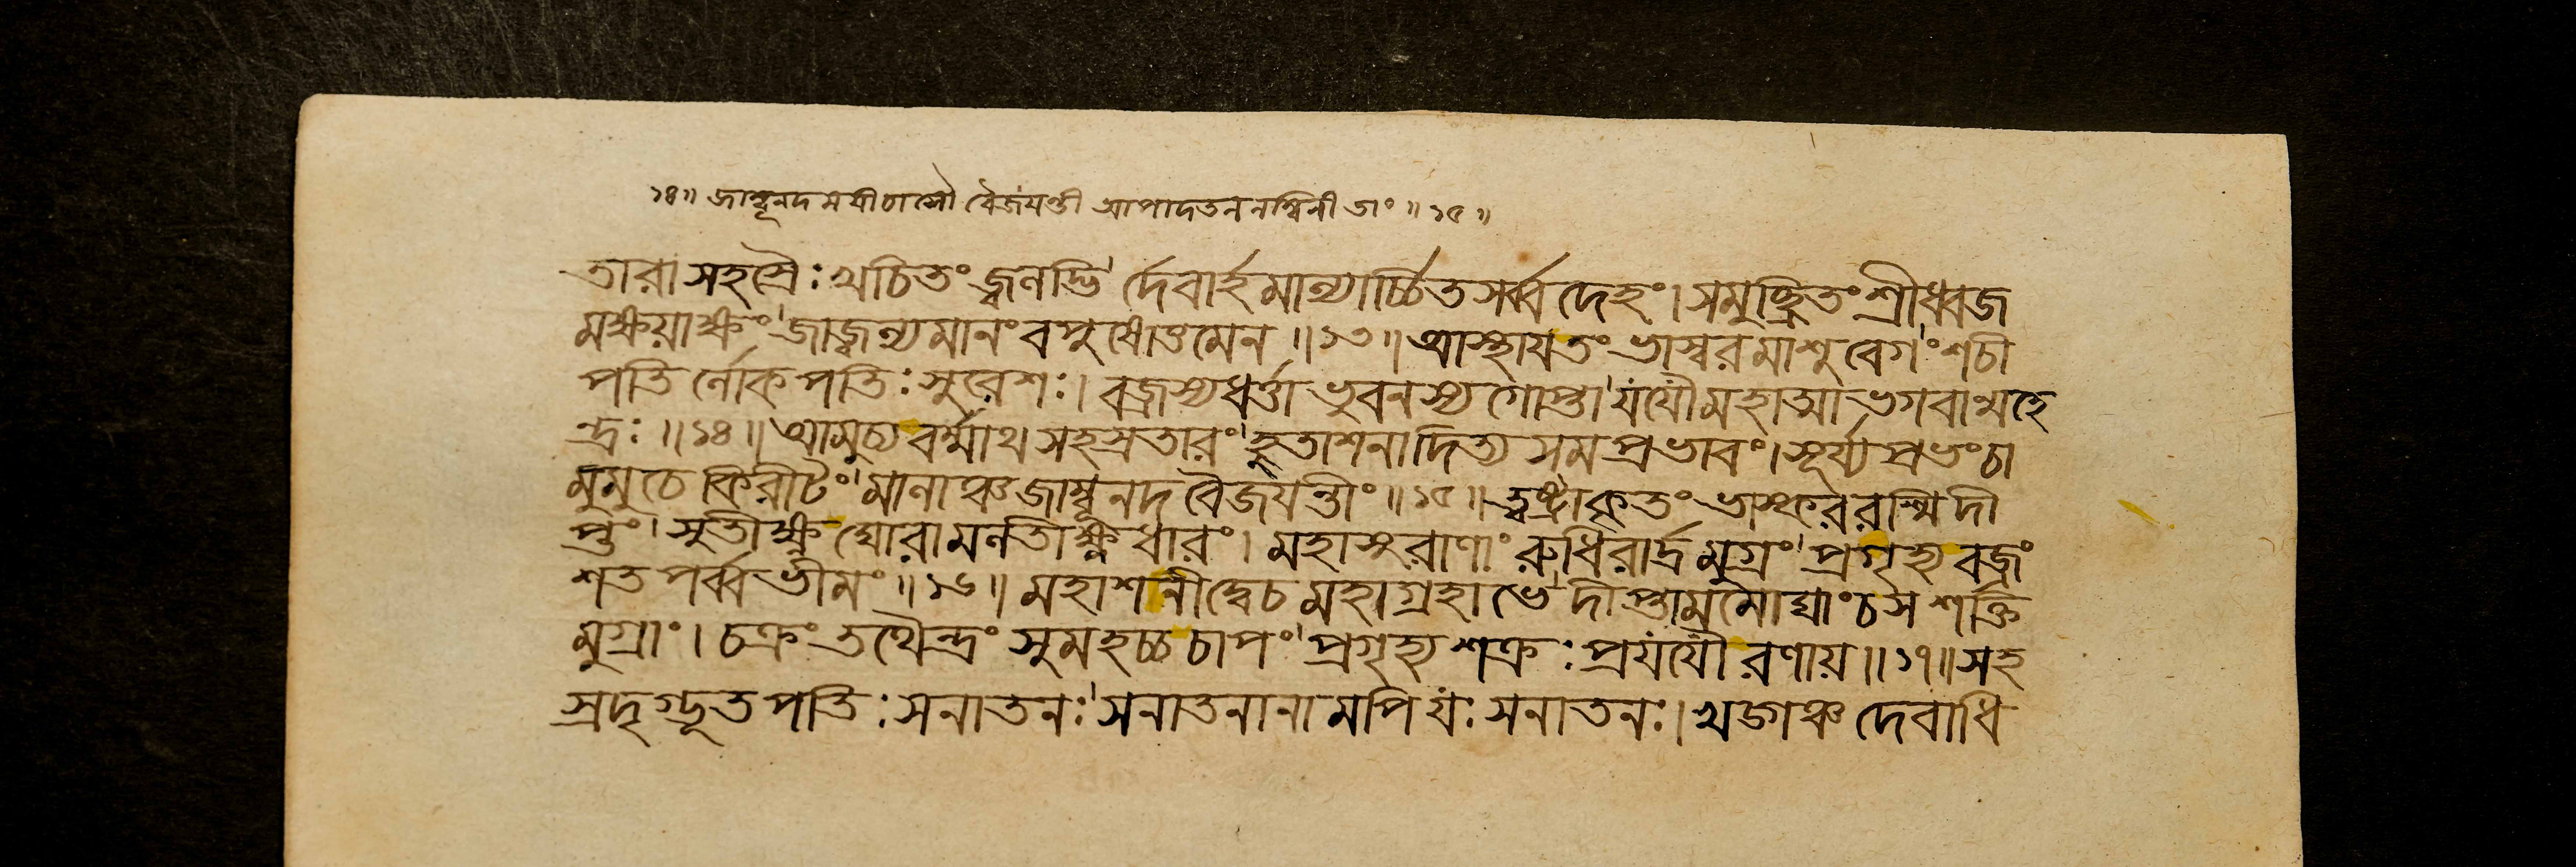 ১৪॥ জাম্বূনদময়ী চাসৌ বৈজয়ন্তী আপাদতललম্বিনী তাং॥১৫॥
তারাসহস্রৈঃ খচিতং জ্বলদ্ভি'র্দেবার্হমাল্যার্চ্চিতসর্ব্বদেহং। সমুচ্ছ্রিতং শ্রীধ্বজ
মক্ষয়াক্ষং' জাজ্বল্যমানং বপুষোত্তমেন॥১৩॥ আস্থায় তং ভাস্বরমাশুবেগং' শচী
পতির্লোকপতিঃ সুরেশঃ। বজ্রস্য ধর্ত্তা ভুবনস্য গোপ্তা' যযৌ মহাত্মা ভগবান্মহে
ন্দ্রঃ॥১৪॥ আমুচ্য বর্ম্মাথ সহস্রতারং' হুতাশনাদিত্যসমপ্রভাবং। সূর্য্যপ্রভং চা
মুমুচে কিরীটং' মালাঞ্চ জাম্বূনদবৈজয়ন্তীং॥১৫॥ ত্বষ্ট্রাকৃতং ভাস্কররশ্মিদী
প্তং' সুতীক্ষ্ণঘোরামলতীক্ষ্ণধারং। মহাসুরাণাং রুধিরার্দ্রমুগ্রং' প্রগৃহ্য বজ্রং
শতপর্ব্বভীমং॥১৬॥ মহাশনী দ্বে চ মহাগ্রহাভে' দীপ্তামমোঘাং চ স শক্তি
মুগ্রাং। চক্রং তথৈন্দ্রং সুমহচ্চ চাপং' প্রগৃহ্য শক্রঃ প্রযযৌ রণায়॥১৭॥ সহ
স্রদৃগ্ভূতপতিঃ সনাতনঃ' সনাতনানামপি যঃ সনাতনঃ। খড্গাঞ্চ দেবাধি